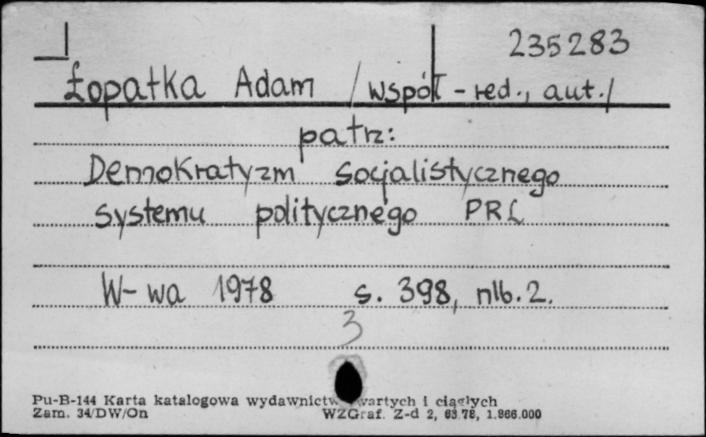 235283
Łopatka Adam /współ-red., aut./
patrz:
Demokratyzm socjalistycznego
systemu politycznego PRL
W-wa 1978 s. 398, nlb. 2.
3
Pu-B-144 Karta katalogowa wydawnictw zwartych i ciągłych
Zam. 34/DW/On WZGraf. Z-d 2, 63.78, 1.866.000